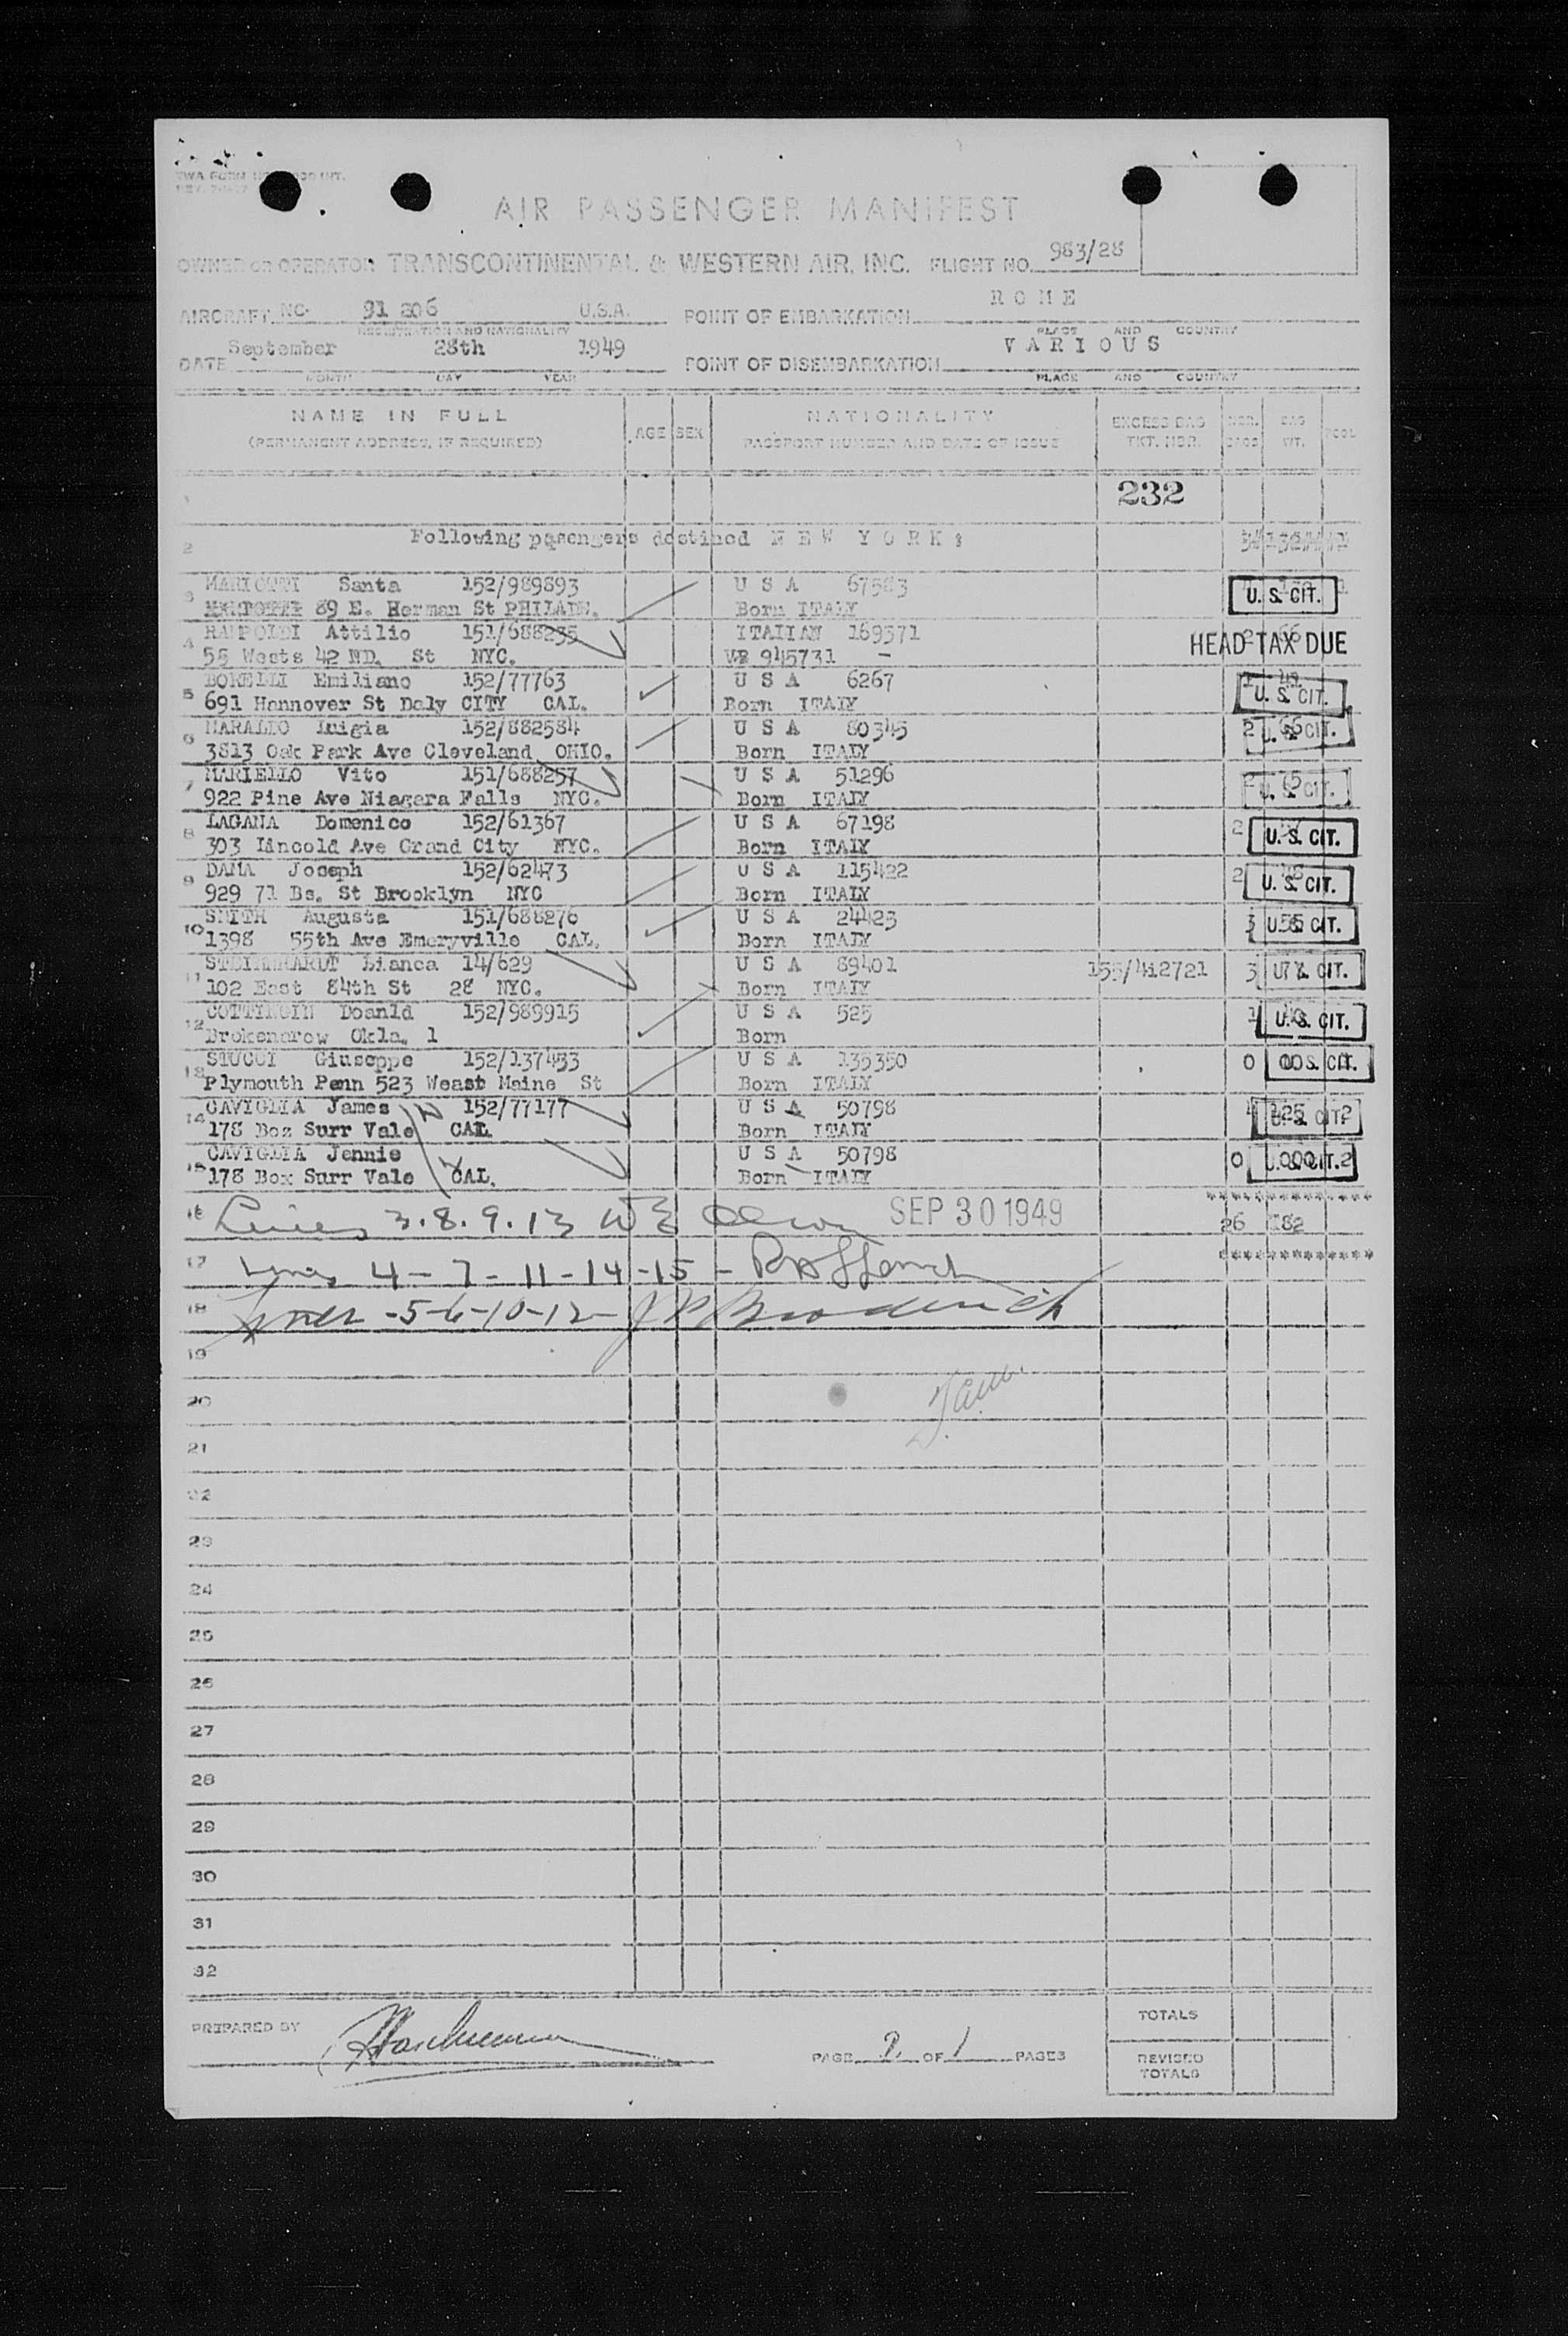 AIR PASSENGER MANIFEST
OWNER OR OPERATOR TRANSCONTINENTAL & WESTERN AIR, INC. FLIGHT NO. 983/28
AIRCRAFT NC- 91 206 U.S.A. POINT OF EMBARKATION R O M E
REGISTRATION AND NATIONALITY PLACE AND COUNTRY
DATE September 28th 1949 POINT OF DISEMBARKATION V A R I O U S
MONTH DAY YEAR PLACE AND COUNTRY
NAME IN FULL AGE SEX NATIONALITY EXCESS BAG NBR. BAG
(PERMANENT ADDRESS, IF REQUIRED) PASSPORT NUMBER AND DATE OF ISSUE TKT. NBR. BAGS WT.
1 232
2 Following pqsengers destined N E W Y O R K :
3 MARIOTTI Santa 152/989893 U S A 67583 U.S. CIT.
89 E. Herman St PHILADE. Born ITALY
4 RAMPOLDI Attilio 151/688235 ITALIAN 169571 HEAD TAX DUE
55 Wests 42 ND. St NYC. 945731 -
5 BORELLI Emiliano 152/77763 U S A 6267 U.S. CIT.
691 Hannover St Daly CITY CAL. Born ITALY
6 MARALLO Luigia 152/882584 U S A 80345 2 U.S. CIT.
3813 Oak Park Ave Cleveland OHIO. Born ITALY
7 MARIELLO Vito 151/688257 U S A 51296 2 U.S. CIT.
922 Pine Ave Niagara Falls NYC. Born ITALY
8 LAGANA Domenico 152/61367 U S A 67198 2 U.S. CIT.
303 Lincold Ave Grand City NYC. Born ITALY
9 DAMA Joseph 152/62473 U S A 115422 2 U.S. CIT.
929 71 Bs. St Brooklyn NYC Born ITALY
10 SMITH Augusta 151/688276 U S A 24423 3 U.S. CIT.
1398 55th Ave Emeryville CAL. Born ITALY
11 STEINHARDT Bianca 14/629 U S A 89401 155/412721 3 U.S. CIT.
102 East 84th St 28 NYC. Born ITALY
12 Doanld 152/989915 U S A 525 1 U.S. CIT.
Brokenarow Okla. 1 Born
13 STUCCI Giuseppe 152/137453 U S A 135350 0 00 U.S. CIT.
Plymouth Penn 523 Weast Maine St Born ITALY
14 CAVIGLIA James 152/77177 U S A 50798 4 125 U.S. CIT. 2
178 Boz Surr Vale CAL. Born ITALY
15 CAVIGLIA Jennie U S A 50798 0 000 U.S. CIT. 2
178 Box Surr Vale CAL. Born ITALY
16 Lines 3.8.9.13 SEP 30 1949 26
17 Lines 4-7-11-14-15-
18 Lines -5-6-10-12- J P Broderick
19
20
21
22
23
24
25
26
27
28
29
30
31
32
PREPARED BY PAGE OF 1 PAGES TOTALS
REVISED
TOTALS